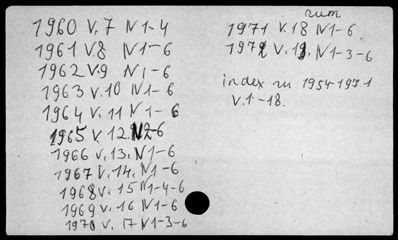 1960 V.7 N1-4
1961 V8 N1-6
1962 V9 N1-6
1963 V.10 N1-6
1964 V.11 N1-6
1965 V.12. N2-6
1966 V.13. N1-6
1967 V.14. N1-6
1968 V. 15 N1-4-6
1969 V. 16 N1-6
1970 V. 17 N1-3-6
rum
1971 V.18 N1-6
1972 V.19. N1-3-6
index zu 1954-1971
V.1-18.